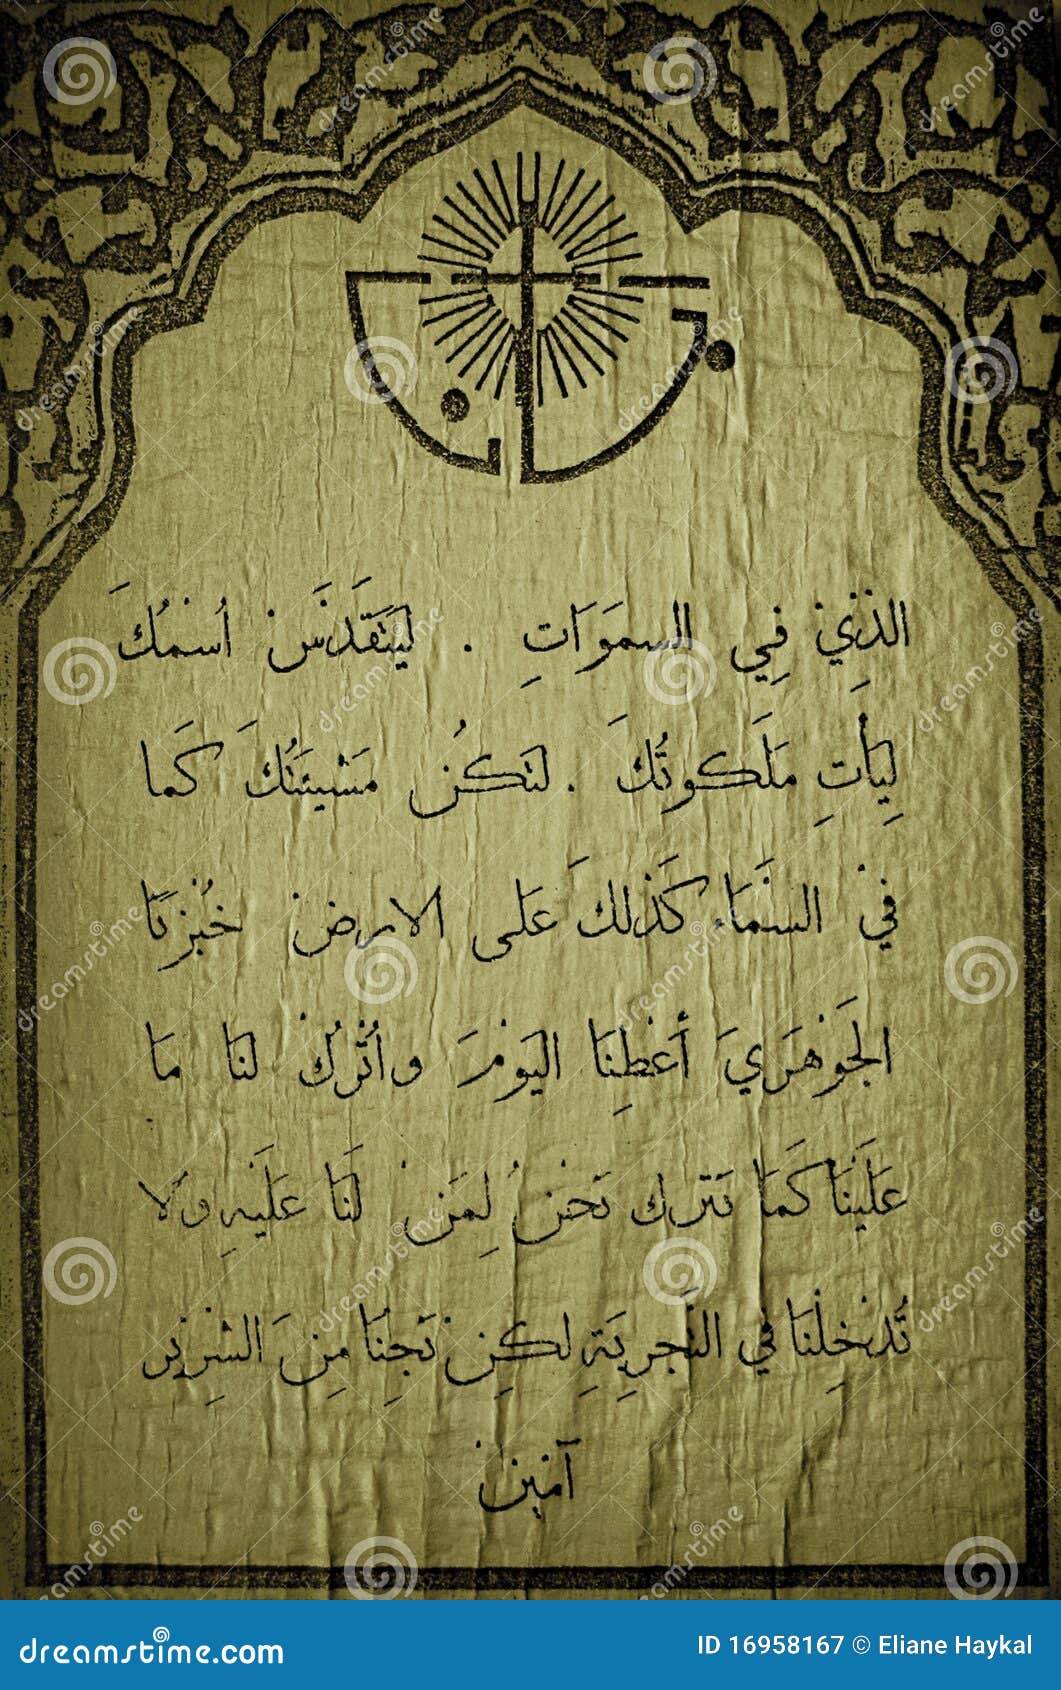 أبانا
الذِي فِي السمَوَاتِ . ليَتَقَدَّسَ أسمُكَ
لِيَأتِ مَلَكوتُكَ . لتَكُن مَشيئَتُكَ كَما
فيْ السَّمَاء كَذلكَ عَلى الارض خُبْزنَا
الجَوْهَرَيَ أعْطِنَا اليَوْمَ وأتْرُكْ لنا مَا
عَلَيْنَا كَمَا نَترك نَحْنُ لِمَنْ لَنَا عَلَيْهِ وَلا
تُدْخِلْنَا في التَّجرِبَةِ لكِنْ نَجِنَا مِنَ الشِرِير
آمين
dreamstime.com
ID 16958167 © Eliane Haykal